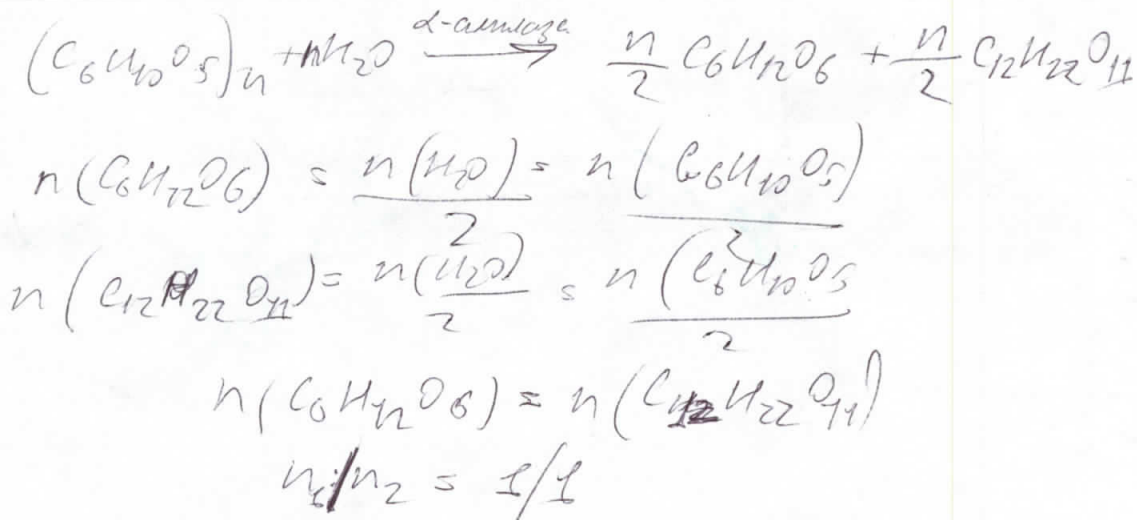 (C6H10O5)n + nH2O α-амилаза → n/2 C6H12O6 + n/2 C12H22O11
n(C6H12O6) = n(H2O)/2 = n(C6H10O5)/2
n(C12H22O11) = n(H2O)/2 = n(C6H10O5/2
n(C6H12O6) = n(C12H22O11)
n1/n2 = 1/1